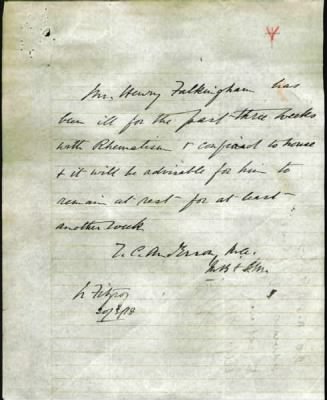 Mr. Henry Falkingham has
been ill for the past three weeks
with Rheumatism & confined to house
& it will be advisable for him to
remain at rest for at least
another week
T. C. Anderson, M.A.
M.B. & Ch.M.
N Fitzroy